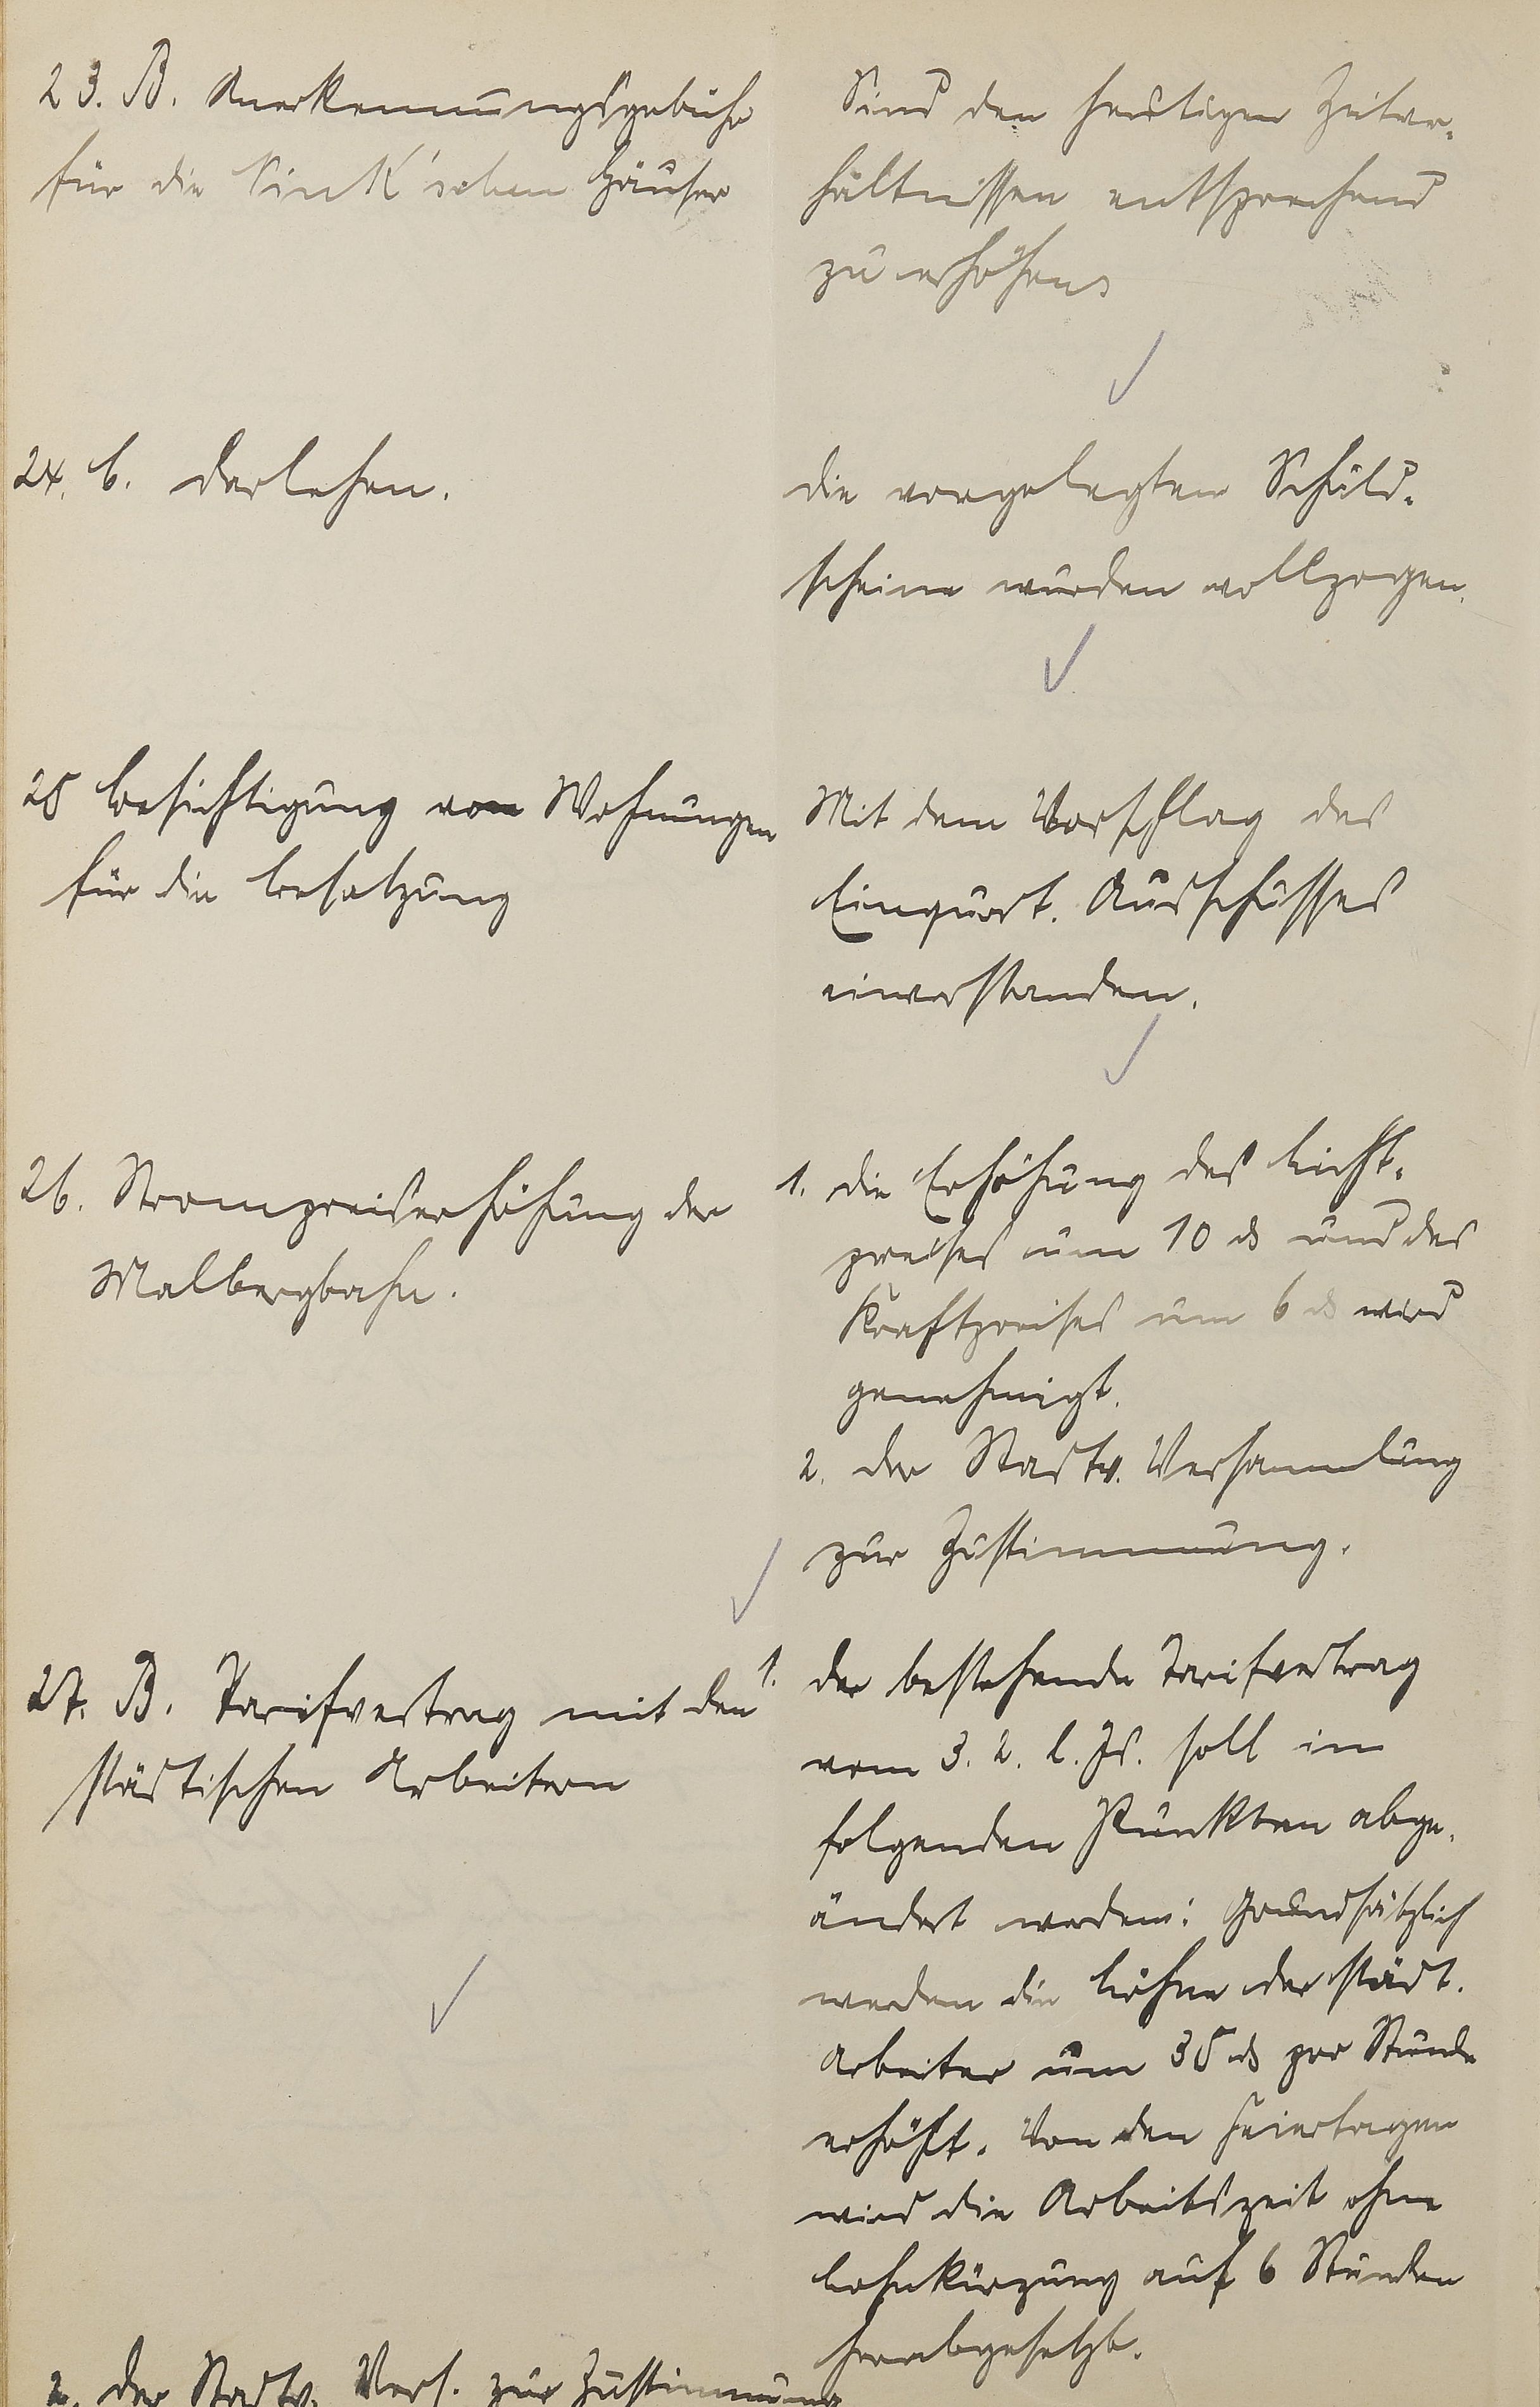 23. B. Anerkennungsgebühr
für die Sink'schen Häuser
Sind den heutigen Zeitver-
hältnissen entsprechend
zu erhöhen
24. b. Darlehen.
Die vorgelegten Schuld-
scheine wurden vollzogen.
25 Besichtigung von Wohnungen
für die Besatzung
Mit dem Vorschlag des
Einquart. Ausschusses
einverstanden.
26. Strompreiserhöhung der
Malbergbahn.
1. Die Erhöhung des Licht-
preises um 10 ₰ und des
Kraftpreises um 6 ₰ wird
genehmigt.
2. Der Stadtv. Versammlung
zur Zustimmung.
27. B. Tarifvertrag mit den
städtischen Arbeitern
1. Der bestehende Tarifvertrag
vom 3. 2. l. Js. soll in
folgenden Punkten abge-
ändert werden: Grundsätzlich
werden die Löhne der städt.
Arbeiter um 35 ₰ pro Stunde
erhöht. Von den Feiertagen
wird die Arbeitszeit ohne
Lohnkürzung auf 6 Stunden
herabgesetzt.
2. Der Stadtv. Vers. zur Zustimmung